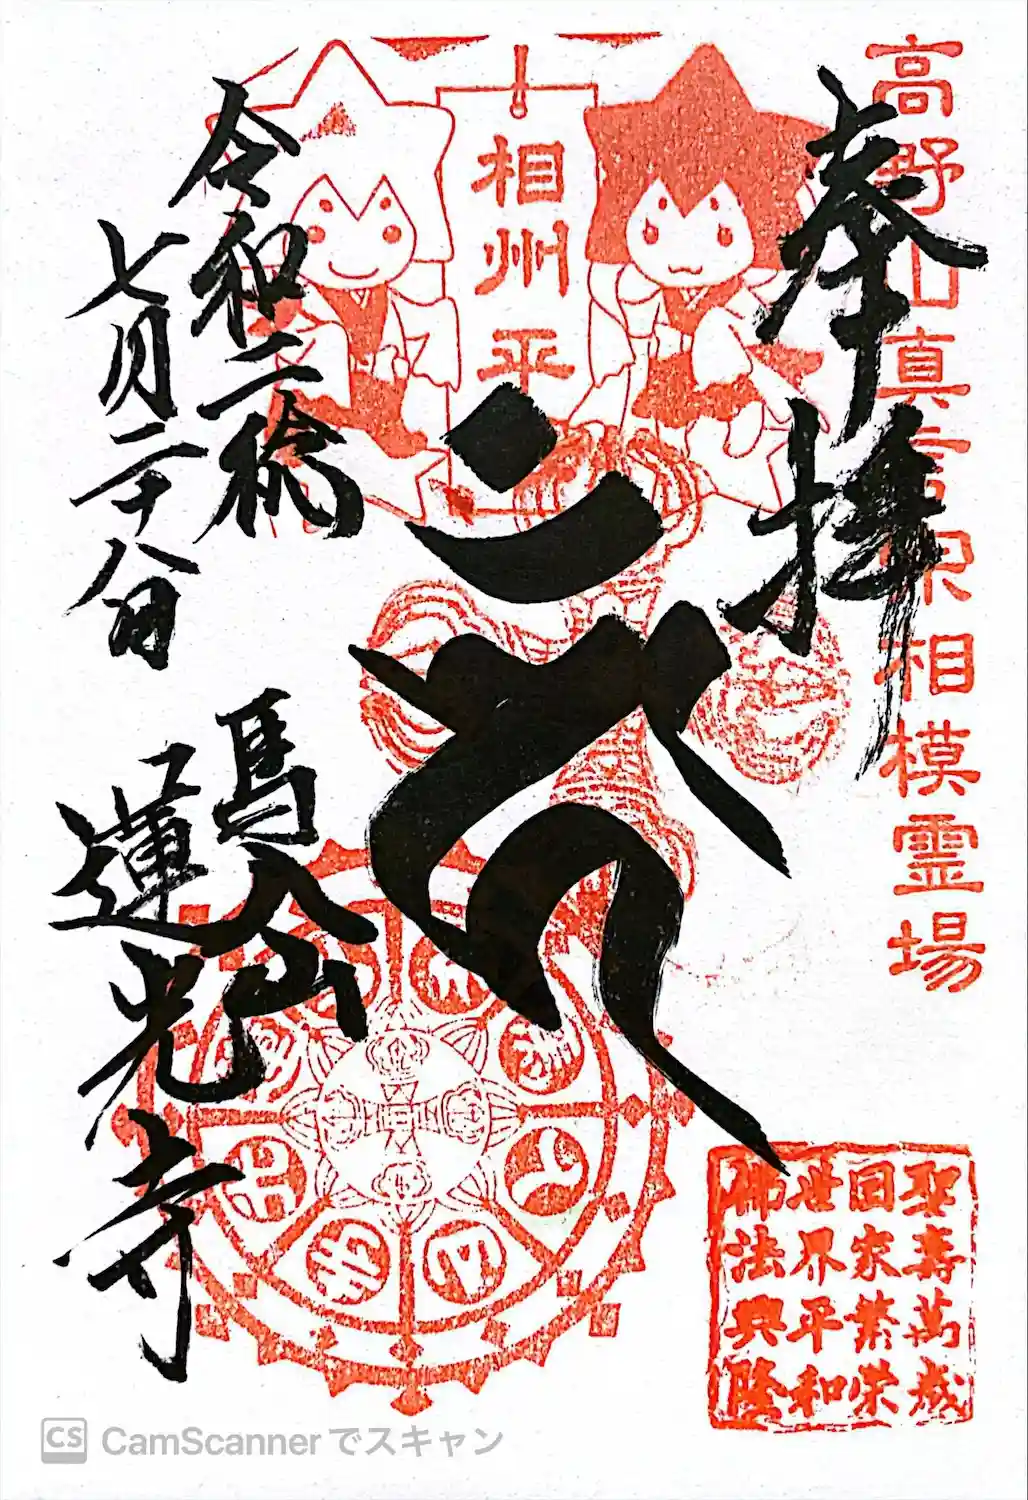 高野山真言宗相模霊場
奉拝
相州平
令和二稔
七月二十八日
馬入山
蓮光寺
聖壽萬歳
国家繁栄
世界平和
佛法興隆
CS CamScannerでスキャン